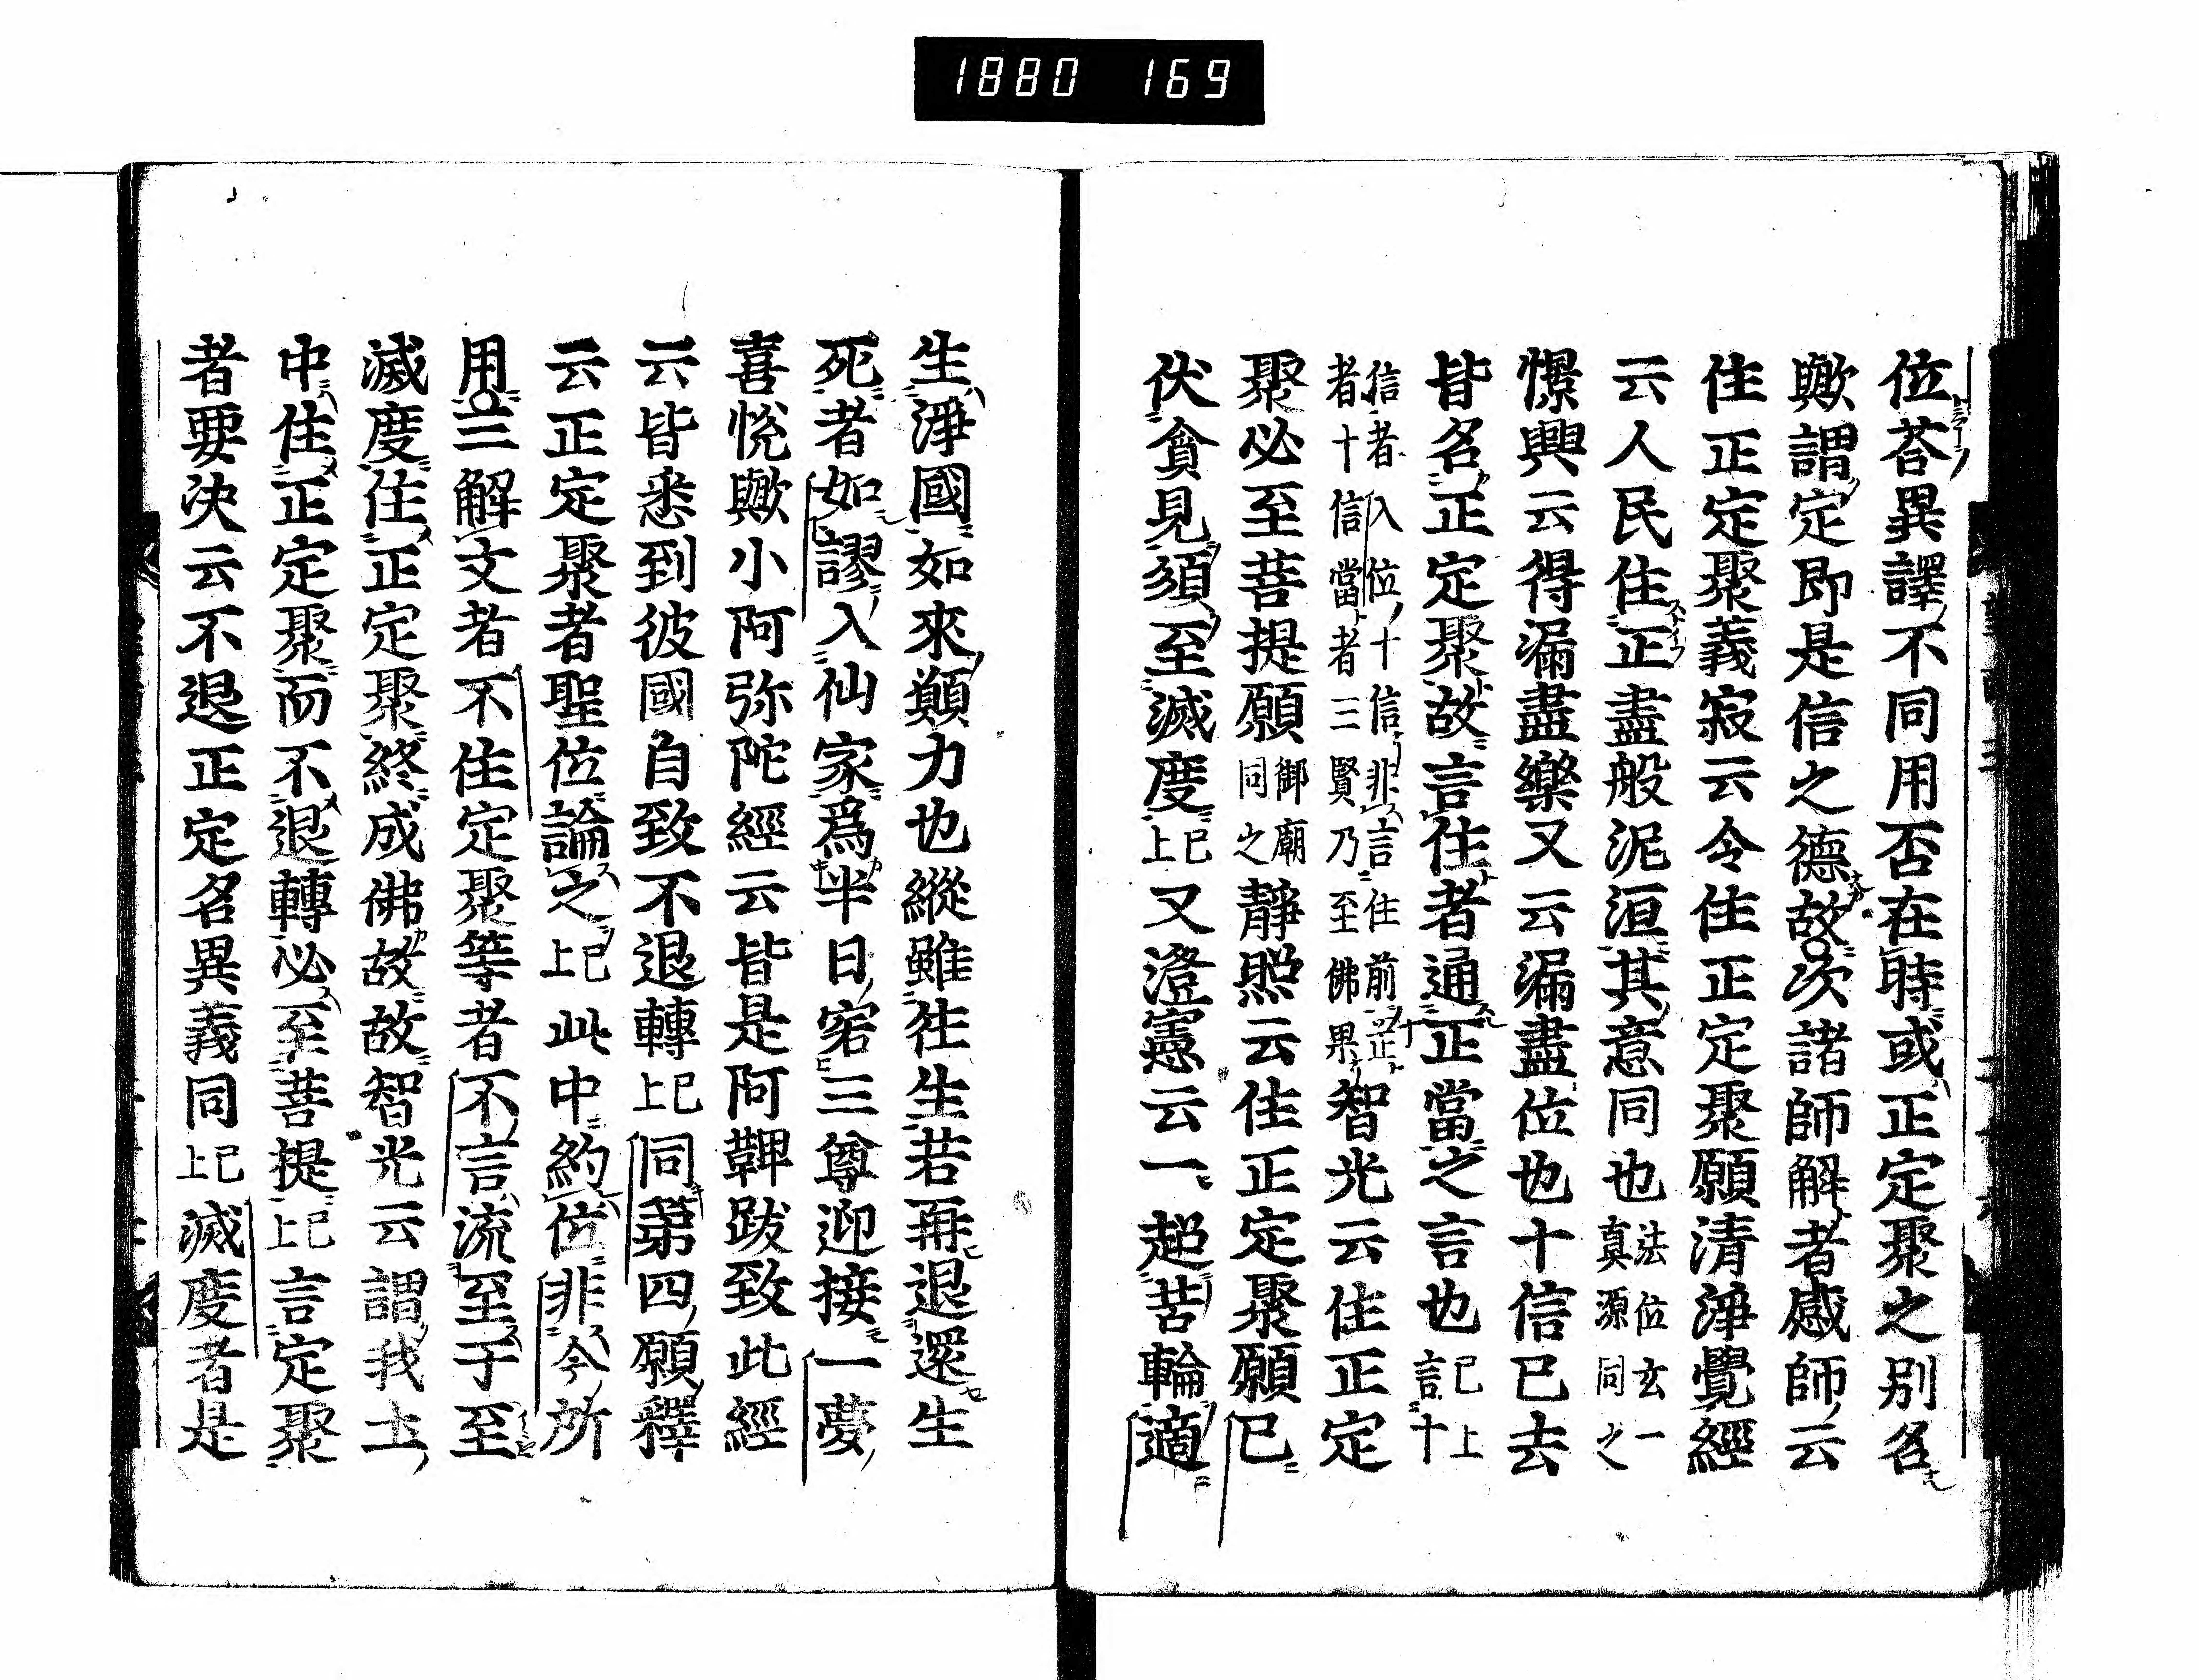 1880 169
位荅異譯不同用否在時或正定聚之別名
歟謂定即是信之德故次諸師解者感師云
住正定聚義寂云令住正定聚願清淨覺經
云人民住正盡般泥洹其意同也法位玄一真源同之
憬興云得漏盡樂又云漏盡位也十信已去
皆名正定聚故言住者通正當之言也已上言十
信者入位十信非言住前正者十信當者三賢乃至佛果智光云住正定
聚必至菩提願御廟同之靜照云住正定聚願已
伏貪見須至滅度已上又澄憲云一超苦輪適
生淨國如來願力也縱雖往生若再退還生
死者如謬入仙家爲半日宿三尊迎接一夢
喜悅歟小阿弥陀經云皆是阿鞞跋致此經
云皆悉到彼國自致不退轉已上同第四願釋
云正定聚者聖位論之已上此中約位非今所
用三解文者不住定聚等者不言流至于至
滅度住正定聚終成佛故故智光云謂我土
中住正定聚而不退轉必至菩提已上言定聚
者要決云不退正定名異義同已上滅度者是